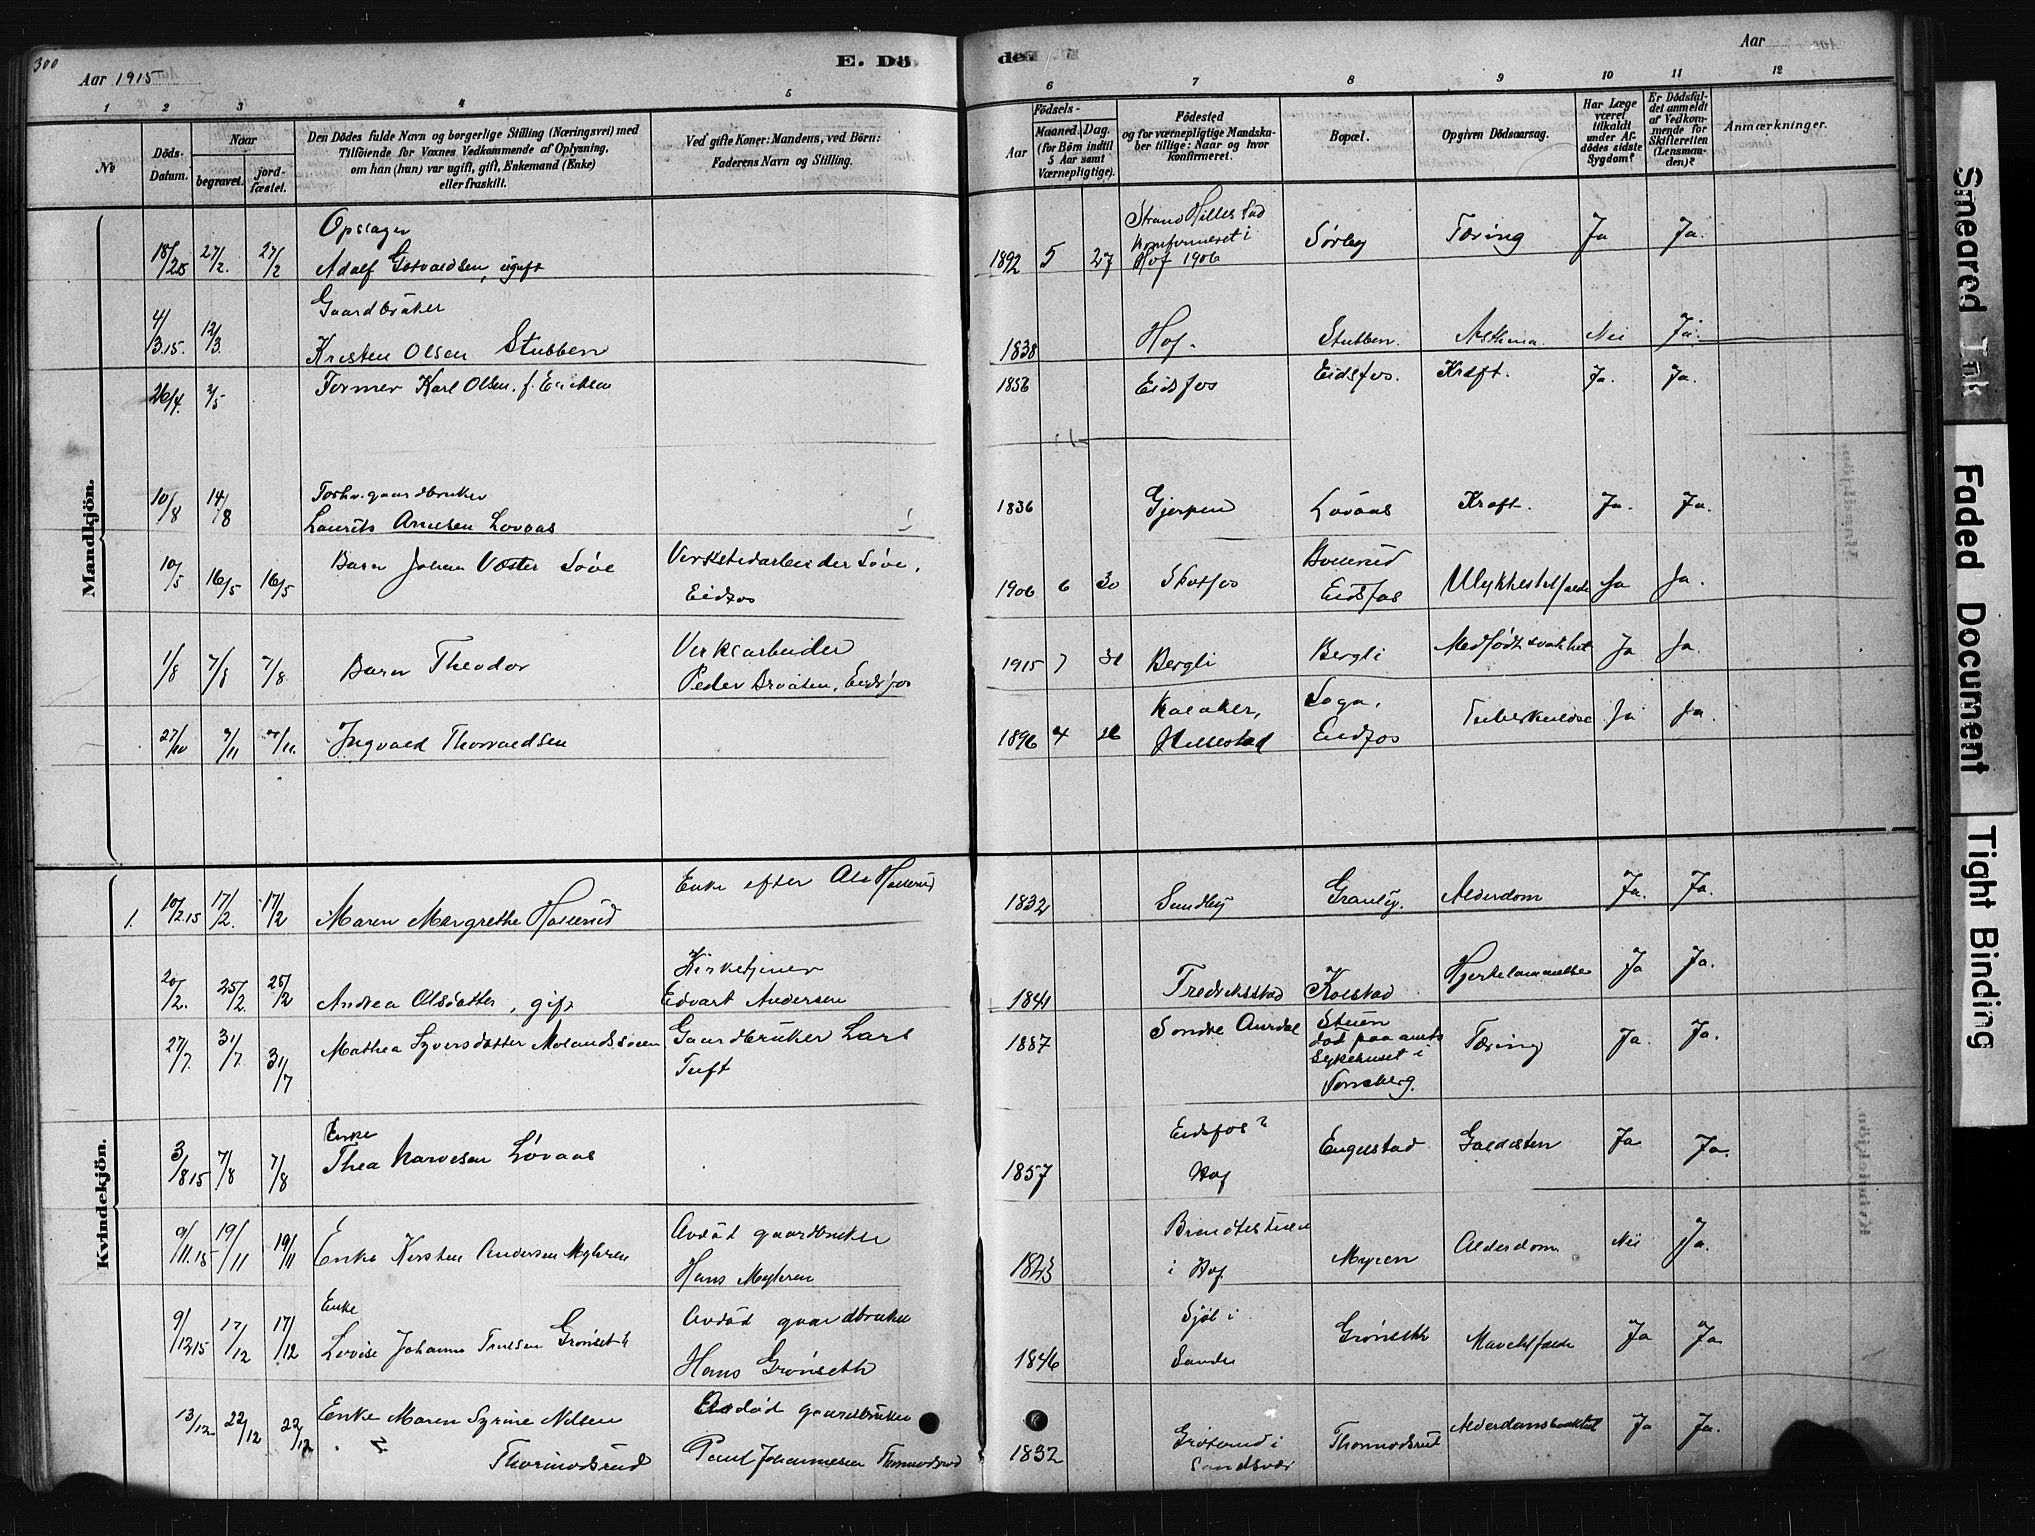 300
Aar 1915
E. Dö
de
Aar
1 2 3 4 5 6 7 8 9 10 11 12
No
Döds-
Datum.
Naar
begravet.
jord-
fæstet.
Den Dödes fulde Navn og borgerlige Stilling (Næringsvei) med
Tilföiende for Voxnes Vedkommende af Oplysning,
om han (hun) var ugift, gift, Enkemand (Enke)
eller fraskilt.
Ved gifte Koner: Mandens, ved Börn:
Faderens Navn og Stilling.
Födsels-
Aar
Maaned. Dag.
(for Börn indtil
5 Aar samt
Værnepligtige).
Födested
og for værnepligtige Mandska-
ber tillige: Naar og hvor
konfirmeret.
Bopæl.
Opgiven Dödsaarsag.
Har Læge
været
tilkaldt
under Af-
dödes sidste
Sygdom?
Er Dödsfal-
det anmeldt
af Vedkom-
mende for
Skifteretten
(Lensman-
den)?
Anmærkninger.
Mandkjön.
Opslager
18/2 15 27/2. 27/2 Adolf Gotvaldsen, ugift
1892 5 27 Strand Hillestad
konfirmeret i
Hof 1906
Sørby Tæring Ja Ja.
Gaardbruker
4/3.15. 12/3. Kristen Olsen Stubben
1838 Hof. Stubben. Asthma. Nei Ja.
26/4. 2/5 Former Karl Olsen, f. Eriksen
1856 Eidsfos Eidsfos. Kræft. Ja. Ja.
10/8 14/8 Forhv. gaardbruker
Laurits Arnesen Lovaas
1836 Gjerpen Lovaas Kræft. Ja. Ja.
10/5 16/5 16/5 Barn Johan Væster Löve Verkstedarbeider Löve,
Eidsfos
1906 6 30 Skotfos Bollerud
Eidsfos
Ulykkestilfælde Ja Ja.
1/8 7/8 7/8. Barn Theodor Verksarbeider
Peder Bråten, Eidsfos
1915 7 31 Bergli Bergli Medfødt svakhet Ja Ja.
27/10 7/11 7/11. Ingvald Thorvaldsen
1896 4 26 Kolaker,
Hillestad
Eidsfos Tuberkulose Ja Ja.
Kvindekjön.
1. 10/2.15 17/2. 17/2 Maren Margrethe Hollerud Enke efter Ole Hollerud
1832 Sundby Granly. Alderdom Ja. Ja.
20/2. 25/2. 25/2 Andrea Olsdatter, gift Kirketjener
Edvart Andersen
1841 Fredriksstad Kolstad Hjertelammelse Ja Ja.
27/7. 31/7. 31/7 Mathea Syversdatter Molandsveen Gaardbruker Lars
Tuft
1887 Söndre Aurdal Stuen
död paa amts
sykehuset i
Tønsberg.
Tæring Ja. Ja.
Enke
3/8 15 7/8 7/8 Thea Narvesen Lövaas
1857 Eidsfos?
Hof
Engelstad Galdesten Ja Ja.
9/11.15 19/11 19/11 Enke Kirsten Andersen Myhren Avdöd gaardbruker
Hans Myhren
1823 Brandtestuen
i Hof
Myren Alderdom. Nei Ja.
Enke
9/12 15 17/12 17/12 Lovise Johanne Truesen Grönseth Avdöd gaardbruker
Hans Grönseth
1846 Sjöl i
Sande
Grønseth Mavetilfælde Ja Ja
13/12. 22/12 22/12. Enke Maren Syrine Nilsen
Thormodsrud
Avdöd gaardbruker
Paul Johannesen Thormodsrud
1832 Grøterud i
Sandsvær
Thormodsrud Alderdomssvakhet Ja Ja.
Smeared Ink
Faded Document
Tight Binding